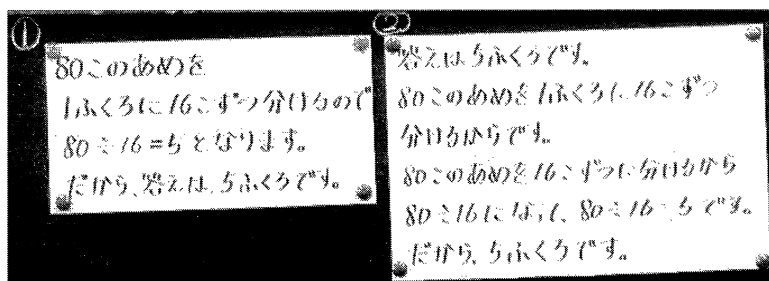 ①
80このあめを
1ふくろに16こずつ分けるので
80÷16=5となります。
だから、答えは、5ふくろです。
②
答えは5ふくろです。
80このあめを1ふくろに16こずつ
分けるからです。
80このあめを16こずつに分けるから
80÷16になって、80÷16=5です。
だから、5ふくろです。